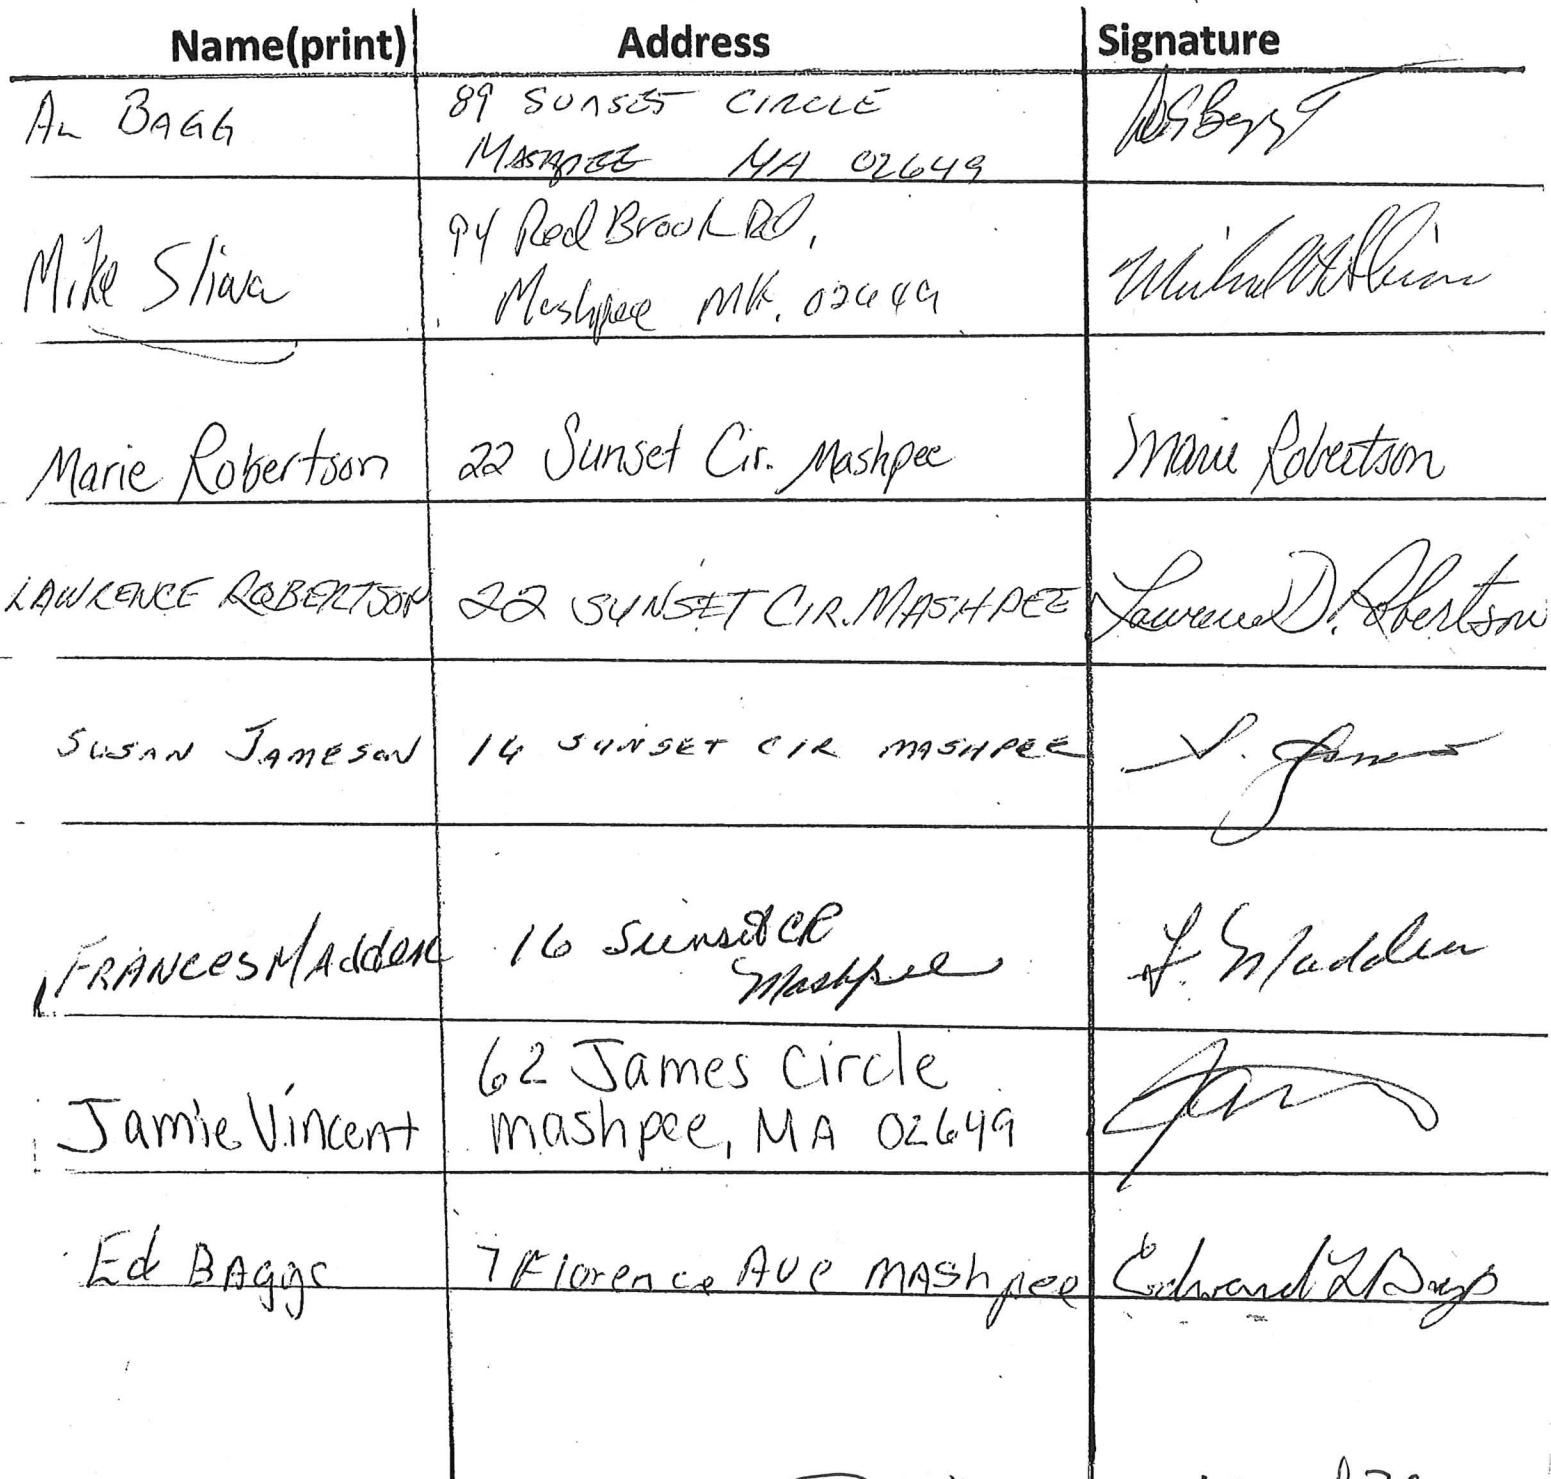 Name(print) Address Signature
AL BAGG 89 SUNSET CIRCLE
MASHPEE MA 02649
Mike Sliwa 94 Red Brook Rd,
Mashpee MA. 02649
Marie Robertson 22 Sunset Cir. Mashpee Marie Robertson
LAWRENCE ROBERTSON 22 SUNSET CIR. MASHPEE Lawrence D. Robertson
SUSAN JAMESON 14 SUNSET CIR MASHPEE S.
FRANCES MAdden 16 Sunset CR F. Madden
Mashpee
Jamie Vincent 62 James Circle
mashpee, MA 02649
Ed BAggs 7 Florence Ave MAShpee Edward L Baggs